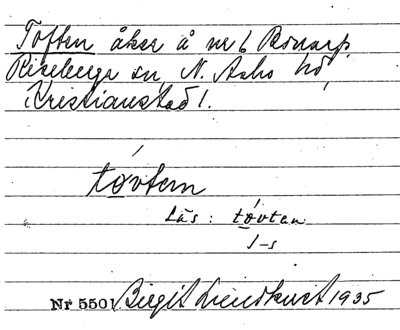 Toften åker å nr 6 Bonarp
Riseberga sn, N. Åsbo hd,
Kristianstad l.
tovtem
Läs: tovtan
1-s
Nr 5501 Birgit Lindkvist 1935